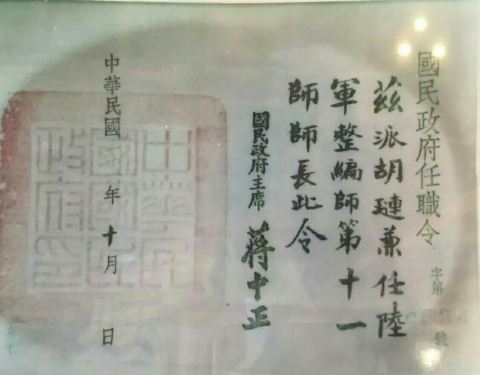 國民政府任職令
字第 號
茲派胡璉兼任陸
軍整編師第十一
師師長此令
國民政府主席 蔣中正
中華民國 年 十月 日